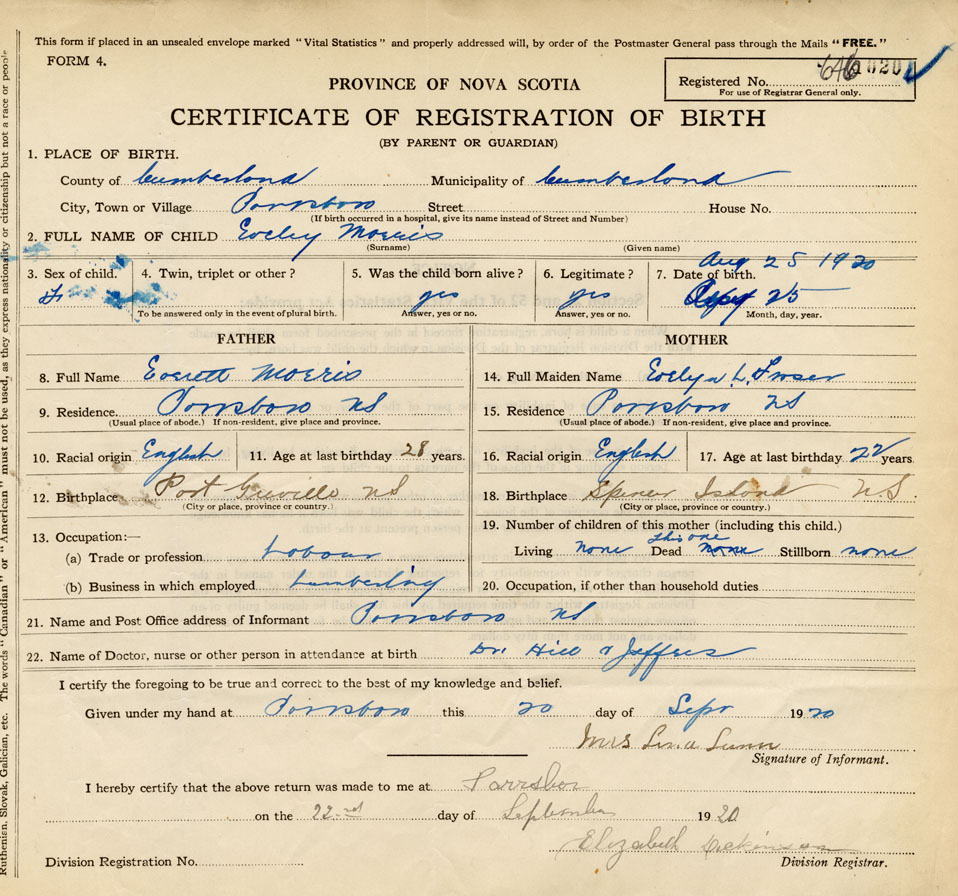 This form if placed in an unsealed envelope marked "Vital Statistics" and properly addressed will, by order of the Postmaster General pass through the Mails "FREE."
FORM 4.
Registered No. 646
For use of Registrar General only.
PROVINCE OF NOVA SCOTIA
CERTIFICATE OF REGISTRATION OF BIRTH
(BY PARENT OR GUARDIAN)
1. PLACE OF BIRTH.
County of Cumberland Municipality of Cumberland
City, Town or Village Parrsboro Street House No.
(If birth occurred in a hospital, give its name instead of Street and Number)
2. FULL NAME OF CHILD Morris
(Surname) (Given name)
Aug 25 1920
3. Sex of child. 4. Twin, triplet or other? 5. Was the child born alive? 6. Legitimate? 7. Date of birth.
yes yes 25
To be answered only in the event of plural birth. Answer, yes or no. Answer, yes or no. Month, day, year.
FATHER MOTHER
8. Full Name Everett Morris 14. Full Maiden Name Evelyn L. Fraser
9. Residence. Parrsboro NS 15. Residence Parrsboro NS
(Usual place of abode.) If non-resident, give place and province. (Usual place of abode.) If non-resident, give place and province.
10. Racial origin English 11. Age at last birthday 28 years. 16. Racial origin English 17. Age at last birthday 22 years.
12. Birthplace Port Greville NS 18. Birthplace Spencer Island N.S.
(City or place, province or country.) (City or place, province or country.)
19. Number of children of this mother (including this child.)
13. Occupation:—
this one
(a) Trade or profession Labour Living none Dead none Stillborn none
(b) Business in which employed Lumbering 20. Occupation, if other than household duties
21. Name and Post Office address of Informant Parrsboro NS
22. Name of Doctor, nurse or other person in attendance at birth Dr. Hill & Jeffers
I certify the foregoing to be true and correct to the best of my knowledge and belief.
Given under my hand at Parrsboro this 20 day of Sept 1920
Mrs
Signature of Informant.
I hereby certify that the above return was made to me at Parrsboro
on the 22nd day of September 1920
Elizabeth Dickinson
Division Registration No. Division Registrar.
Ruthenian, Slovak, Galician, etc. The words "Canadian" or "American" must not be used, as they express nationality or citizenship but not a race or people